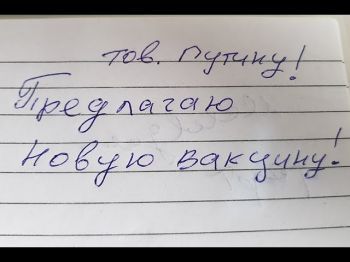 тов. Путину!
Предлагаю
новую вакцину!